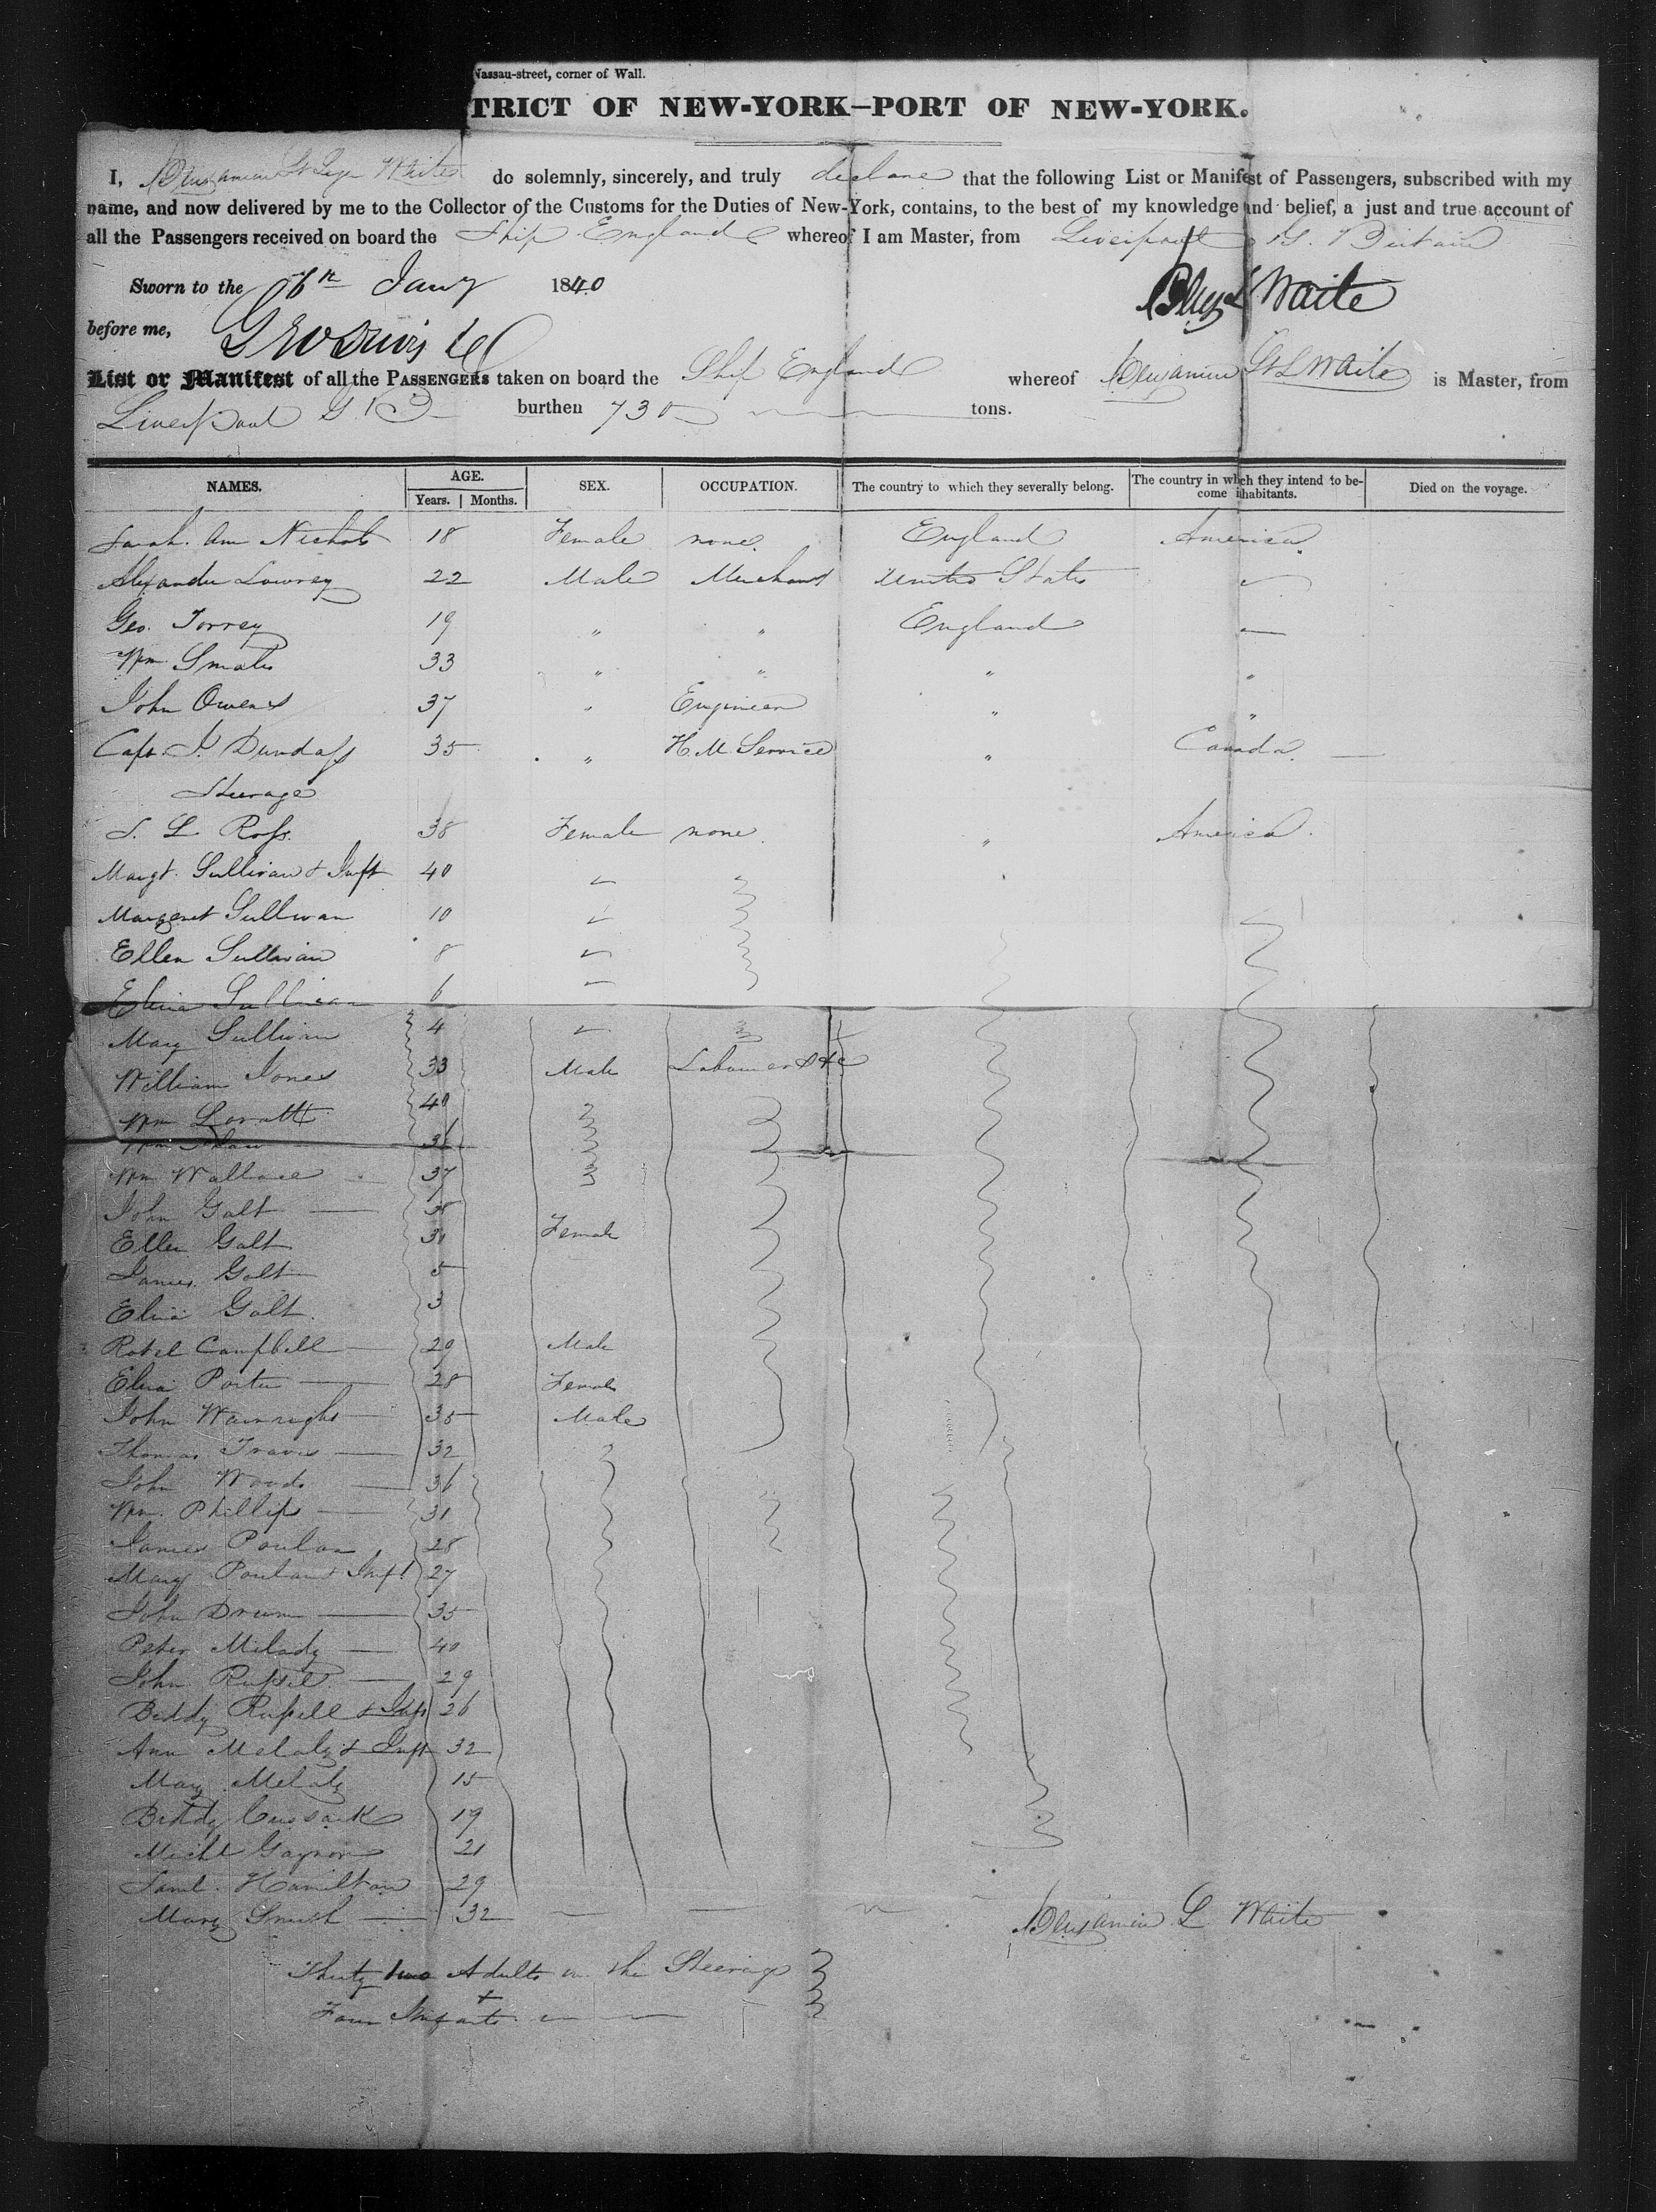 Nassau-street, corner of Wall.
TRICT OF NEW-YORK—PORT OF NEW-YORK.
I, Benjamin St Leger Waite do solemnly, sincerely, and truly declare that the following List or Manifest of Passengers, subscribed with my
name, and now delivered by me to the Collector of the Customs for the Duties of New-York, contains, to the best of my knowledge and belief, a just and true account of
all the Passengers received on board the Ship England whereof I am Master, from Liverpool G. Britain
Sworn to the 6th Jany 1840
Waite
before me,
List or Manifest of all the PASSENGERS taken on board the Ship England whereof Benjamin St L Waite is Master, from
Liverpool G B burthen 730 tons.
NAMES. AGE. SEX. OCCUPATION. The country to which they severally belong. The country in which they intend to become inhabitants. Died on the voyage.
Years. Months.
Sarah Ann Nichols 18 Female none. England America.
Alexander Lowrey 22 Male Merchant United States
Geo. Torrey 19 " " England
Wm. 33 " " " "
John Owens 37 " Engineer " "
Capt. Dundass 35 " H. M Service " Canada.
Steerage
S. L. Ross. 38 Female none. " America.
Margt. Sullivan & Inft 40
Margaret Sullivan 10
Ellen Sullivan 8
Eliza Sullivan 6
Mary Sullivan 4
William Jones 33 Male Labourer &c
Wm Lovatt 40
Wm Shaw 36
Wm Wallace 37
John Galt 38
Ellen Galt 31 Female
James Galt 5
Eliza Galt. 3
Robt Campbell 29 Male
Eliza Porter 28 Female
John Wainright 35 Male
Thomas Travis 32
John Woods 36
Wm. Phillips 31
James 28
Mary & Inft 27
John Drum 35
Peter Milady 40
John Russel 29
Biddy Russell & Inft 26
Ann & Inft 32
Mary 15
Biddy Cussack 19
Michl Gaynor 21
Saml. Hamilton 29
Mary Smith 32
Benjamin L Waite
Thirty two Adults in the Steerage
Four Infants